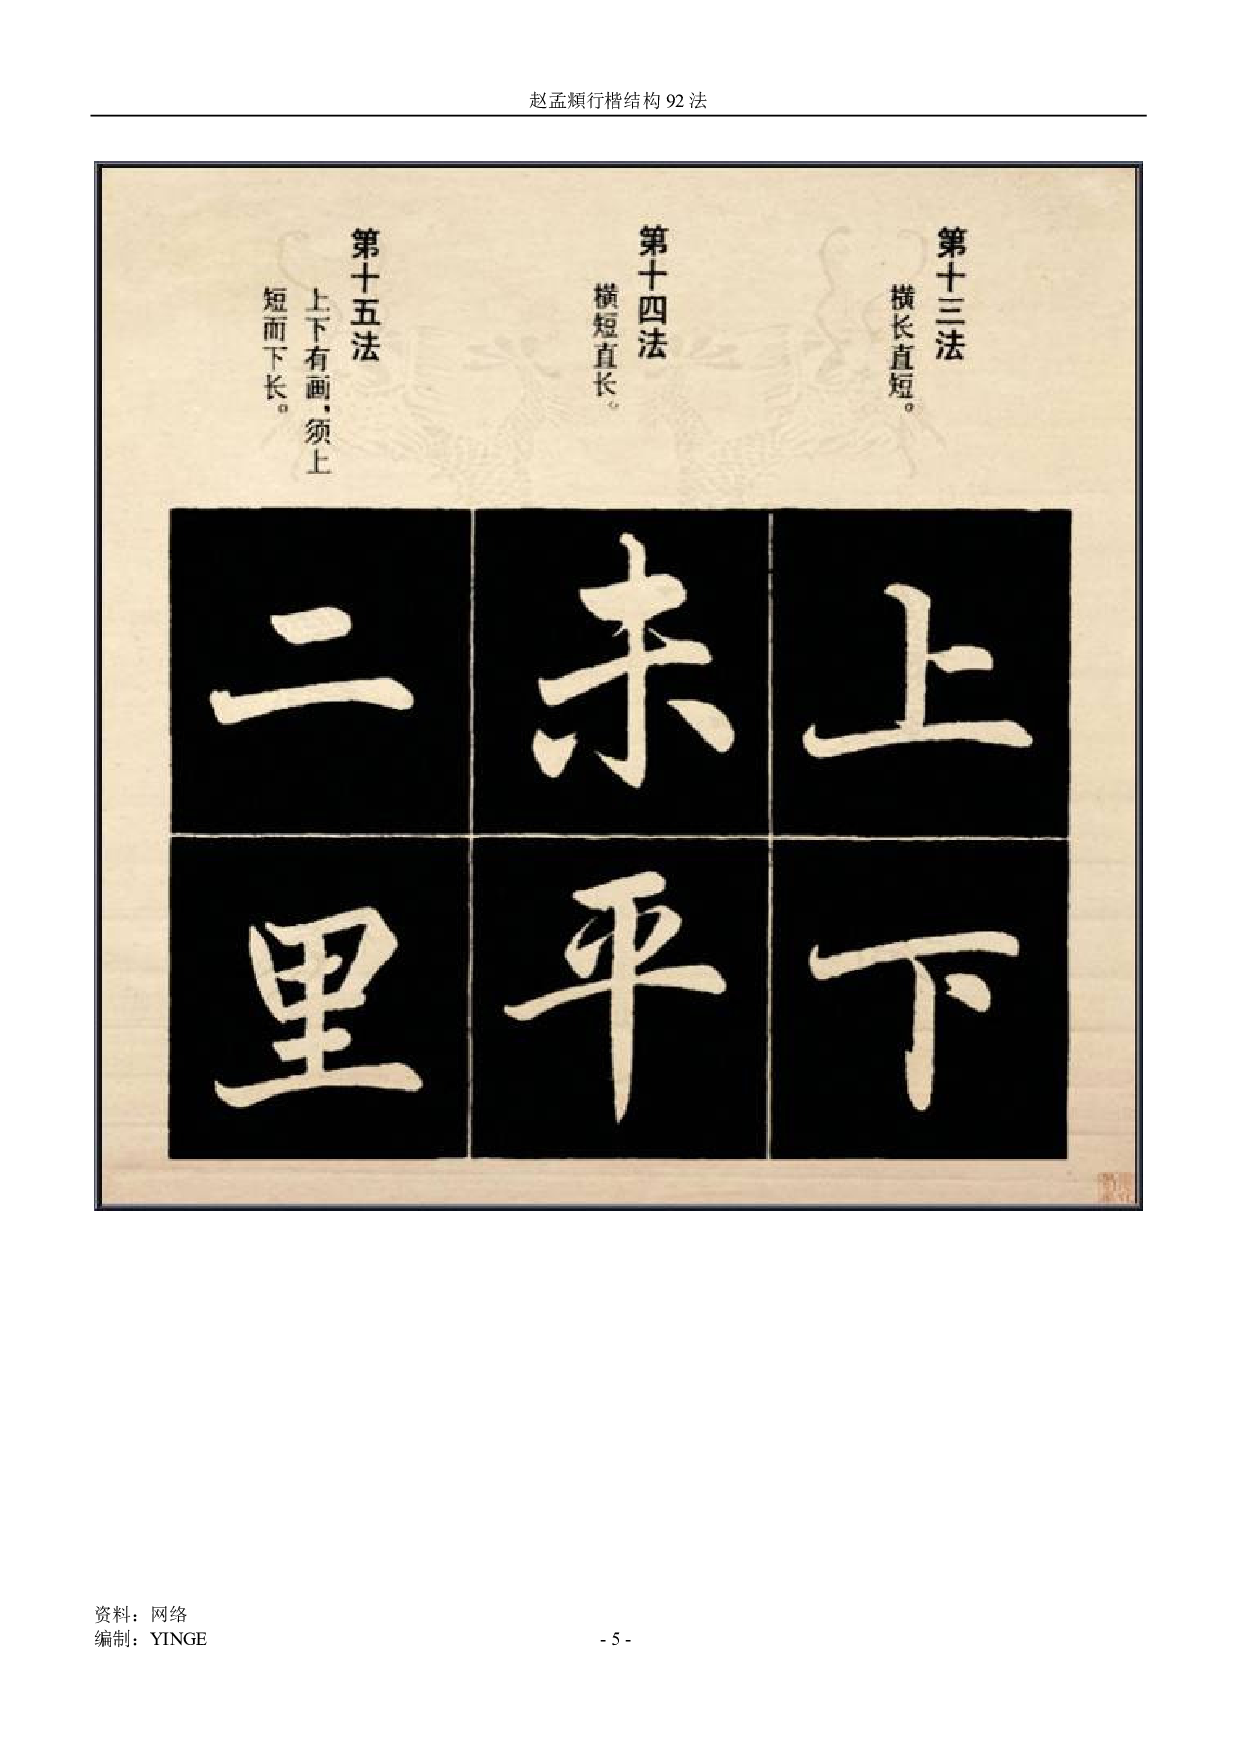 赵孟頫行楷结构 92 法
第十三法
横长直短。
第十四法
横短直长。
第十五法
上下有画，须上
短而下长。
上
下
未
平
二
里
资料：网络
编制：YINGE
- 5 -